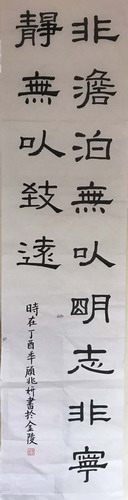 非澹泊無以明志非寧
靜無以致遠
時在丁酉年顧兆妍書於金陵